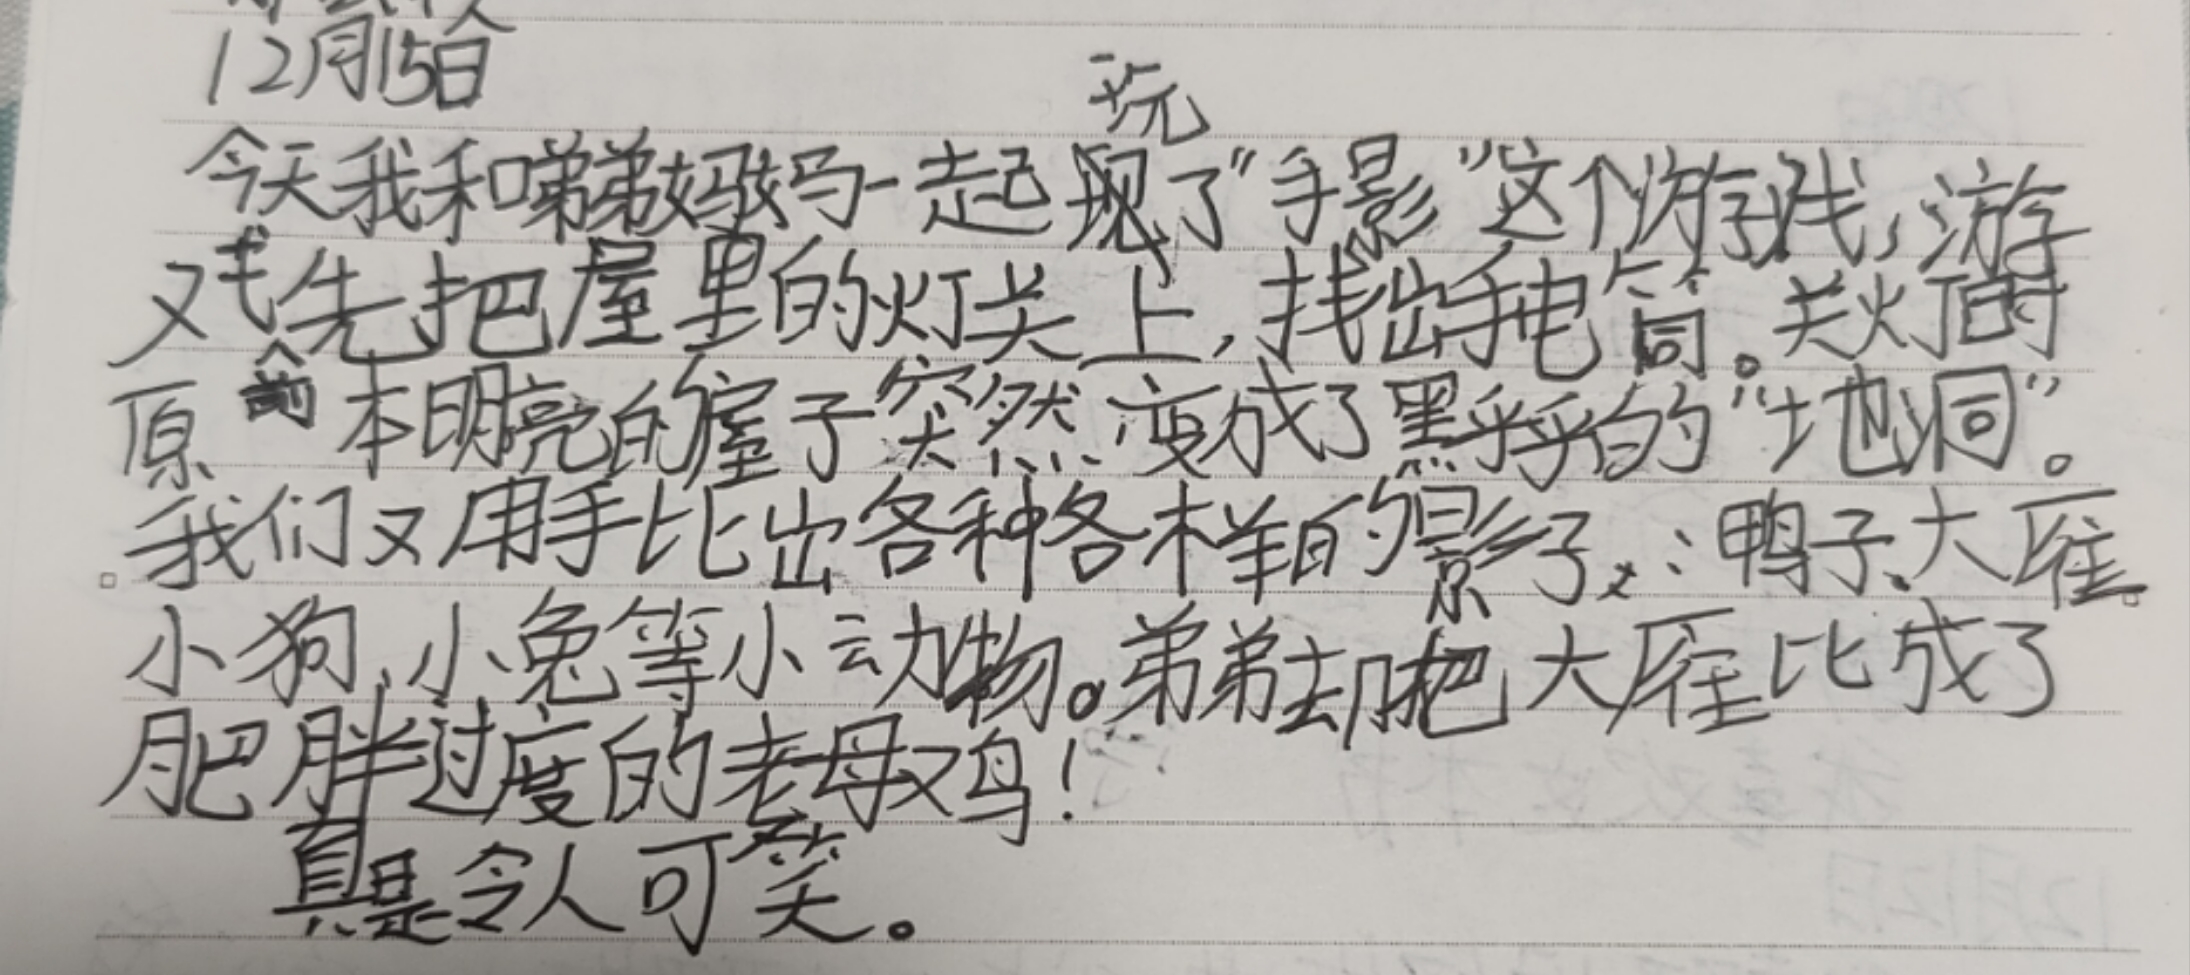 12月15日
玩
今天我和弟弟妈妈一起现了“手影”这个游戏，游
戏先把屋里的灯关上，找出手电筒。关火灯时
原本明亮的屋子突然变成了黑乎乎的“地洞”。
我们又用手比出各种各样的影子：鸭子、大雁。
小狗、小兔等小动物。弟弟却把大雁比成了
肥胖过度的老母鸡！
真是令人可笑。